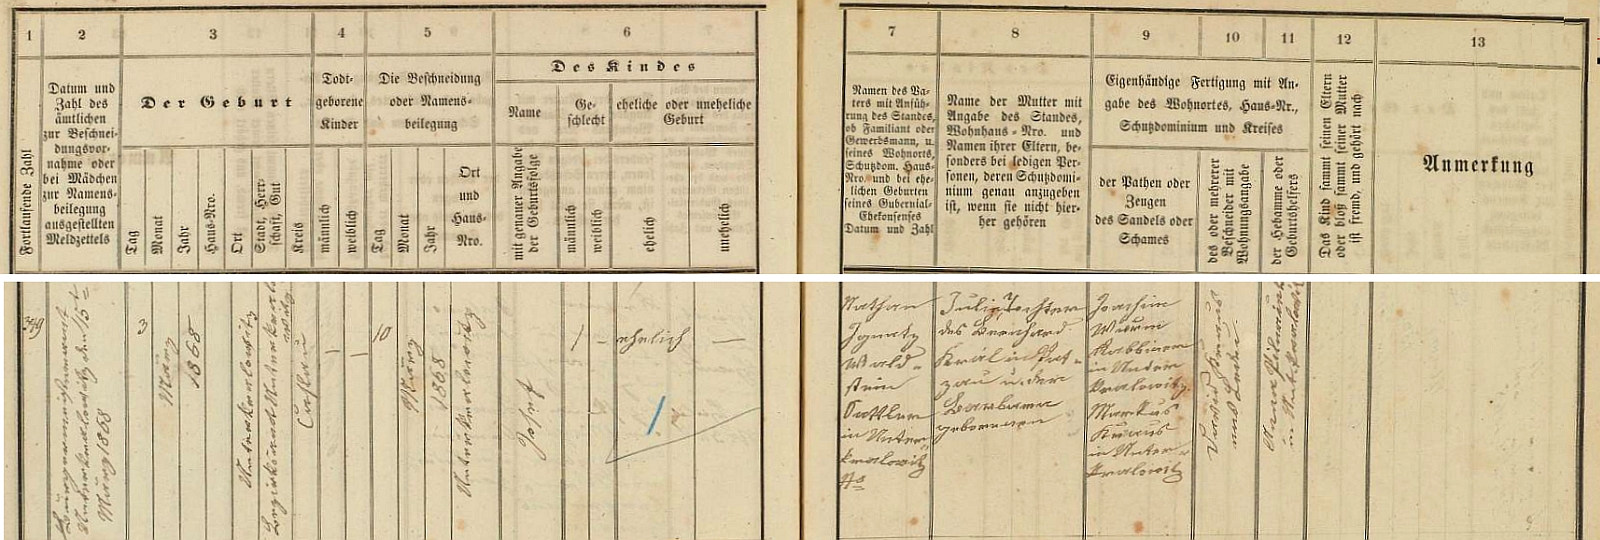 1
2
3
4
5
6
7
8
9
10
11
12
13
Fortlaufende Zahl
Datum und
Zahl des
ämtlichen
zur Beschnei-
dungsvor-
nahme oder
bei Mädchen
zur Namens-
beilegung
ausgestellten
Meldzettels
Der Geburt
Tag
Monat
Jahr
Haus-Nro.
Ort
Stadt, Herr-
schaft, Gut
Kreis
Todt-
geborene
Kinder
männlich
weiblich
Die Beschneidung
oder Namens-
beilegung
Tag
Monat
Jahr
Ort
und
Haus-
Nro.
Des Kindes
Name
mit genauer Angabe
der Geburtsfolge
Ge-
schlecht
männlich
weiblich
eheliche oder uneheliche
Geburt
ehelich
unehelich
Namen des Va-
ters mit Anfüh-
rung des Standes,
ob Familiant oder
Gewerbsmann, u.
seines Wohnorts,
Schutzdom. Haus-
Nro. und bei ehe-
lichen Geburten
seines Gubernial-
Ehekonsenses
Datum und Zahl
Name der Mutter mit
Angabe des Standes,
Wohnhaus-Nro. und
Namen ihrer Eltern, be-
sonders bei ledigen Per-
sonen, deren Schutzdomi-
nium genau anzugeben
ist, wenn sie nicht hier-
her gehören
Eigenhändige Fertigung mit An-
gabe des Wohnortes, Haus-Nr.,
Schutzdominium und Kreises
der Pathen oder
Zeugen
des Sandels oder
Schames
des oder mehrerer
Beschneider mit
Wohnungsangabe
der Hebamme oder
Geburtshelfers
Das Kind sammt seinen Eltern
oder bloß sammt seiner Mutter
ist fremd, und gehört nach
Anmerkung
den 15
März 1868
3
März
1868
Unterkralowitz
Časlau
10
März
1868
Unterkralowitz
Josef
1
ehelich
Nathan
Ignatz
Wald-
stein
Sattler
in Unter
kralowitz
Julie Tochter
des Bernhard
u. der
Barbara
geborenen
Joachim
Wurm
Rabbiner
in Unter
kralowitz
Markus
Kraus
in Unter
kralowitz
Anna